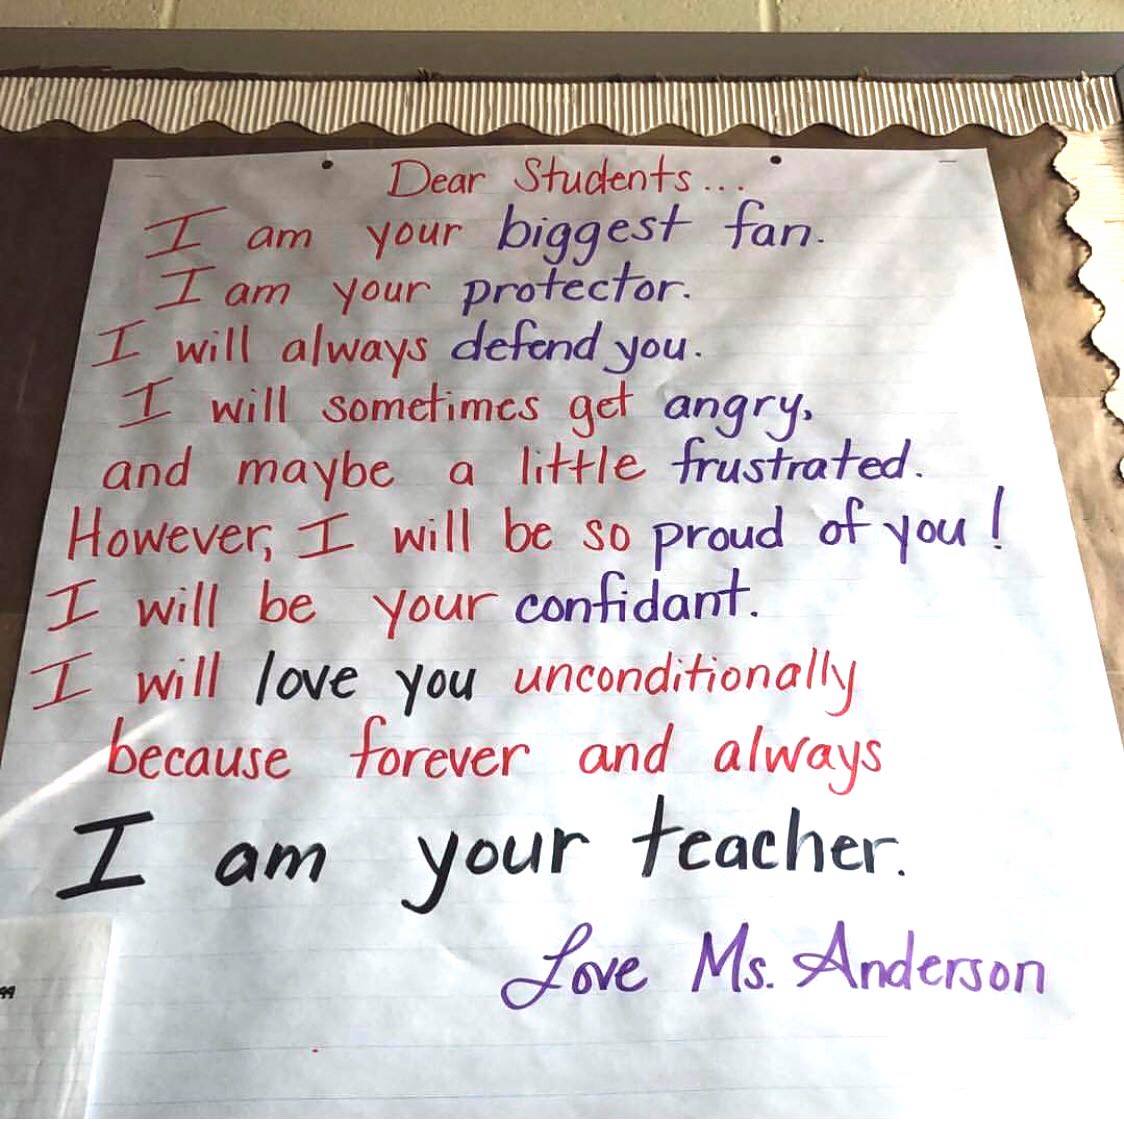 Dear Students...
I am your biggest fan.
I am your protector.
I will always defend you.
I will sometimes get angry,
and maybe a little frustrated.
However, I will be so proud of you!
I will be your confidant.
I will love you unconditionally
because forever and always
I am your teacher.
Love Ms. Anderson